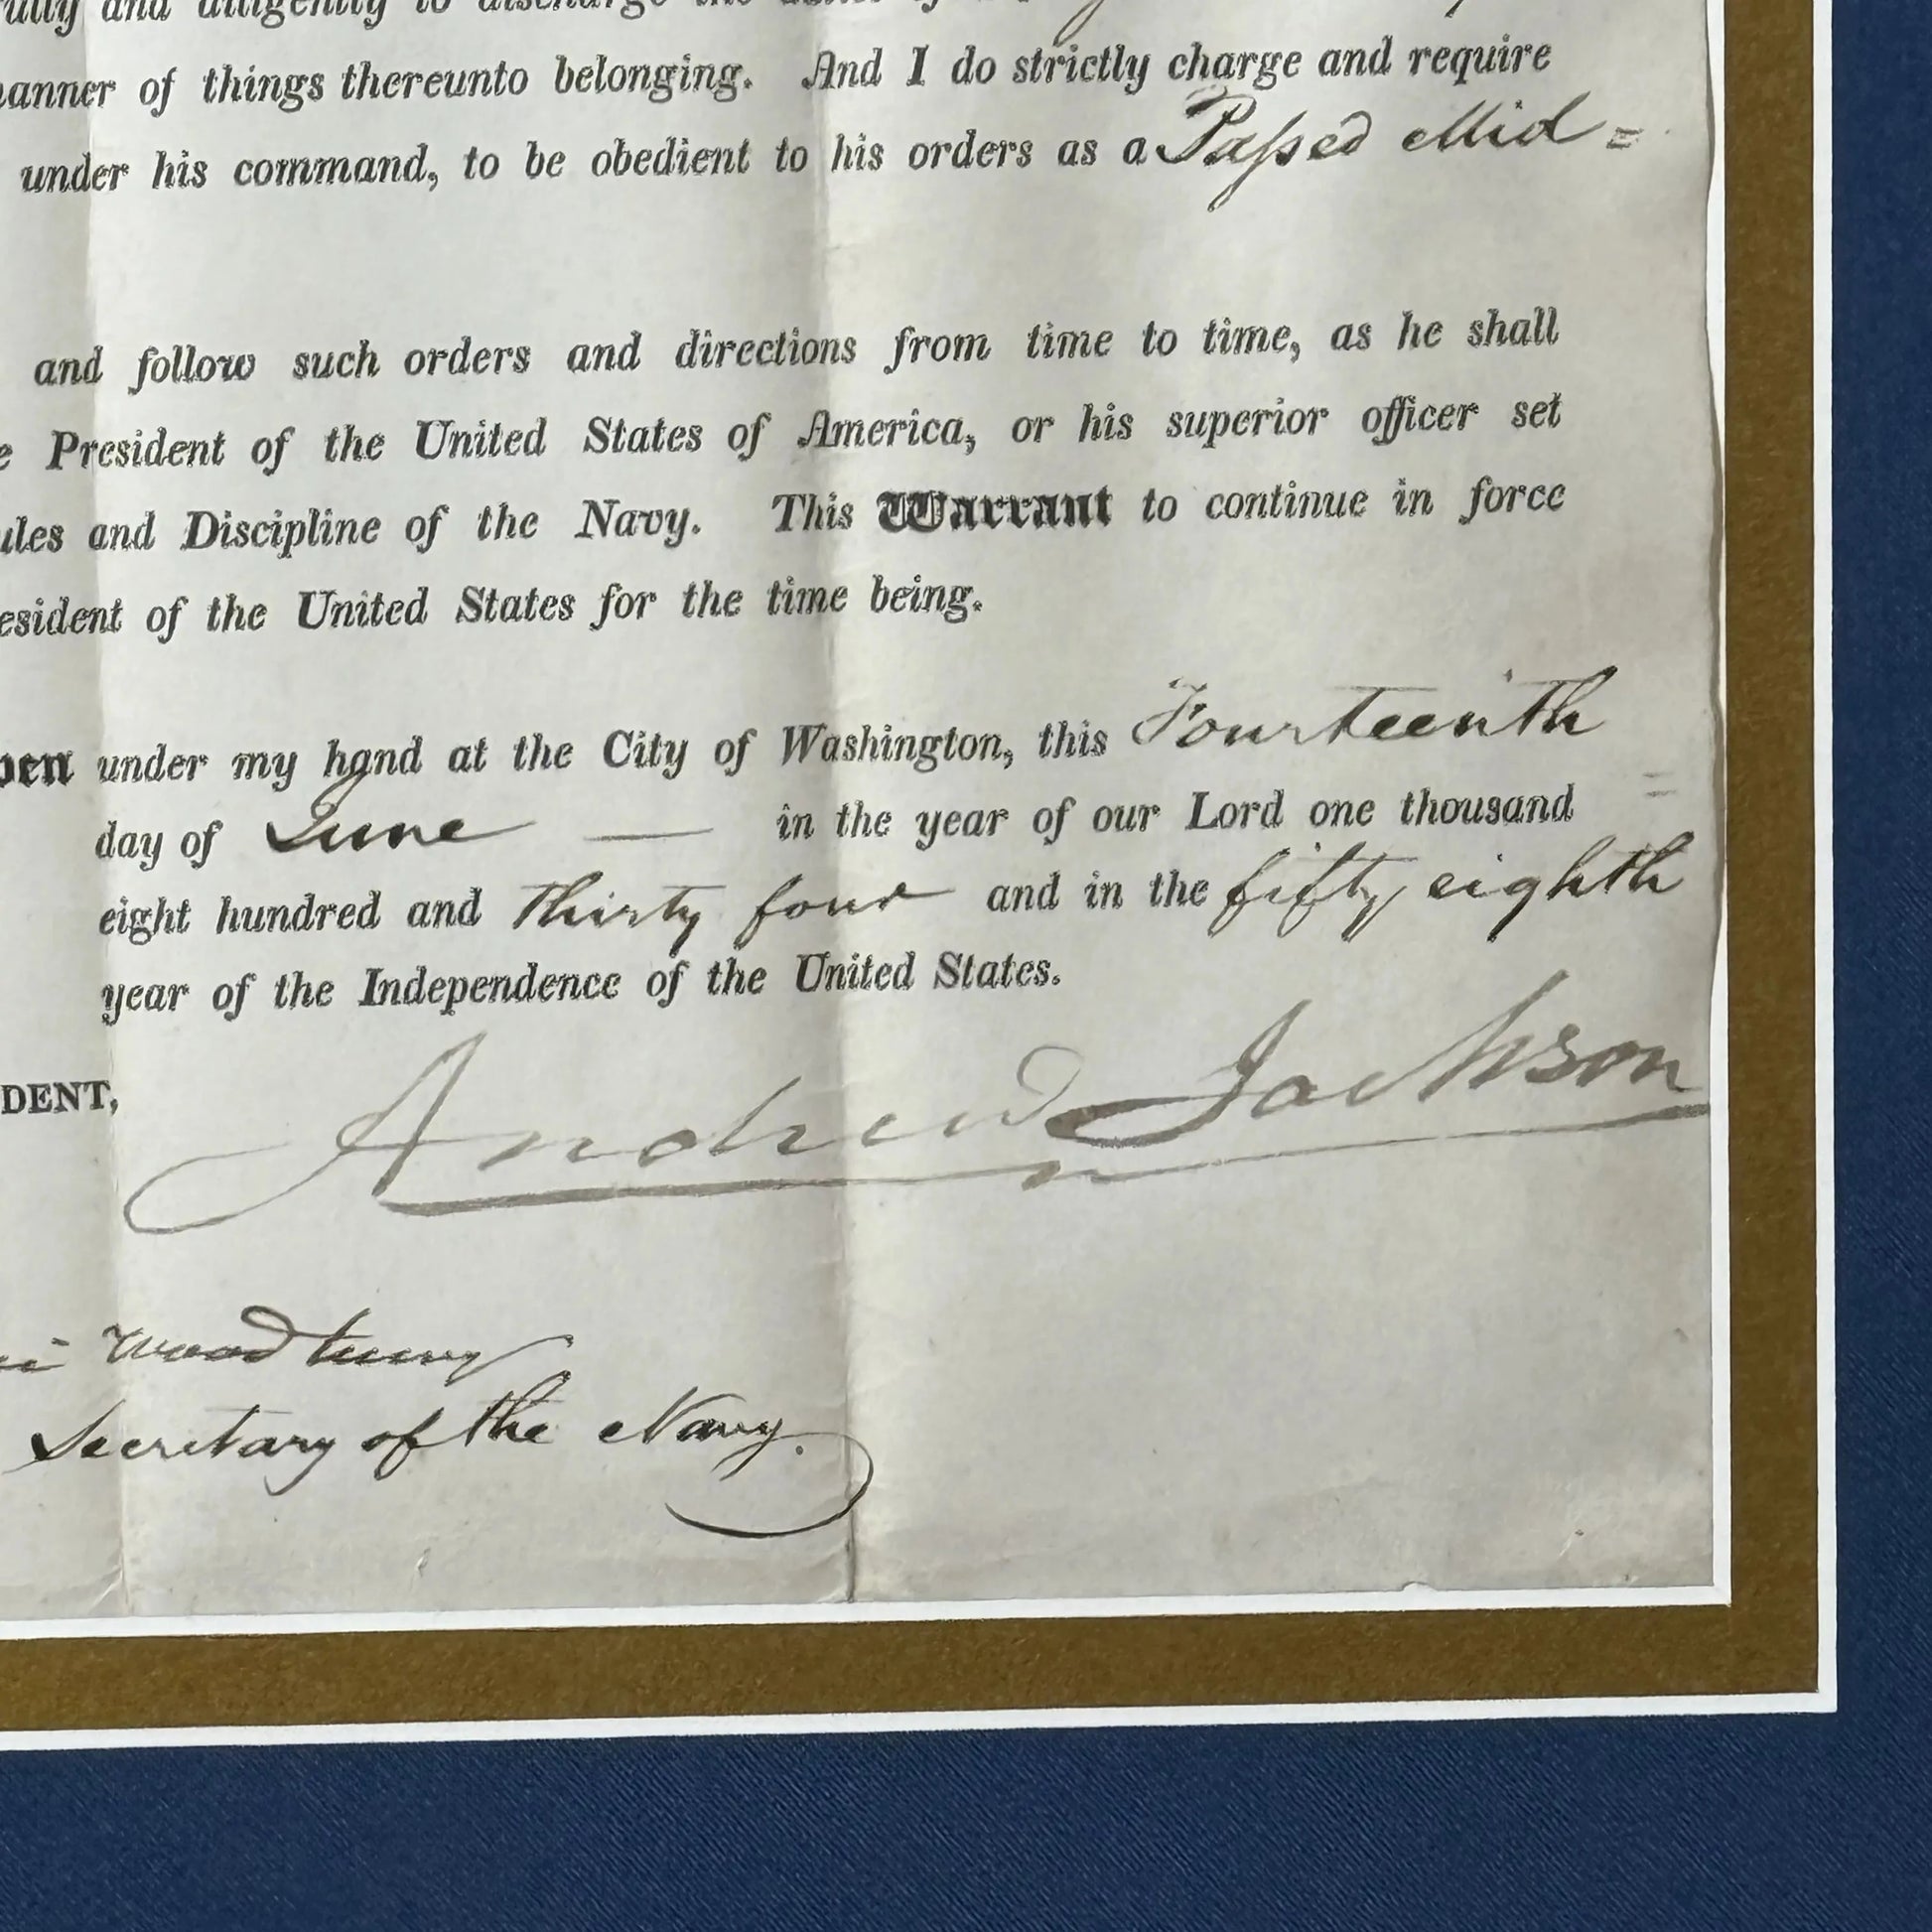 and diligently to discharge the
of things thereunto belonging. And I do strictly charge and require
under his command, to be obedient to his orders as a Passed Mid =
and follow such orders and directions from time to time, as he shall
President of the United States of America, or his superior officer set
and Discipline of the Navy. This Warrant to continue in force
of the United States for the time being.
under my hand at the City of Washington, this Fourteenth
day of June — in the year of our Lord one thousand =
eight hundred and thirty four and in the fifty eighth
year of the Independence of the United States.
DENT,
Andrew Jackson
Woodbury
Secretary of the Navy.